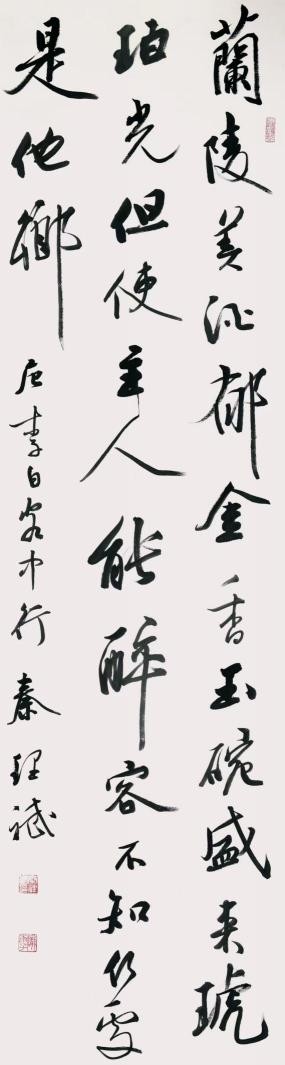 蘭陵美酒郁金香玉碗盛来琥
珀光但使主人能醉客不知何處
是他鄉
唐李白客中行 秦理斌